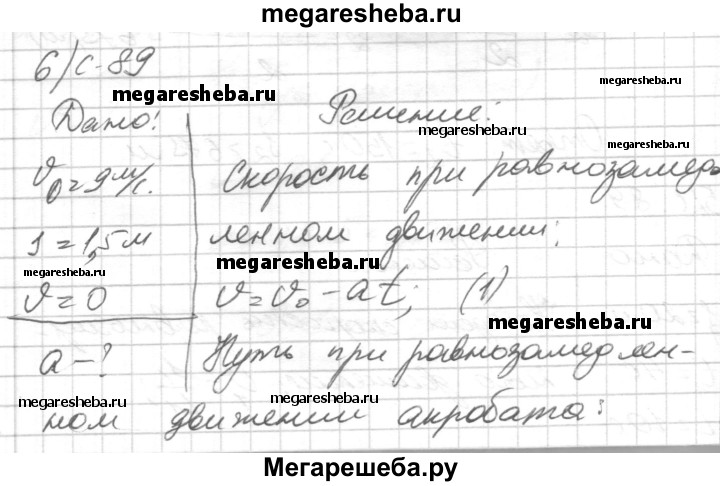 megaresheba.ru
6/с-89
megaresheba.ru
Дано:
Решение:
megaresheba.ru
megaresheba.ru
V₀=9м/с.
Скорость при равнозамед-
s=1,5м
ленном движении:
megaresheba.ru
megaresheba.ru
V=0
V=V₀-at; (1)
megaresheba.ru
a-?
Путь при равнозамедлен-
megaresheba.ru
megaresheba.ru
ном движении акробата:
Мегарешеба.ру